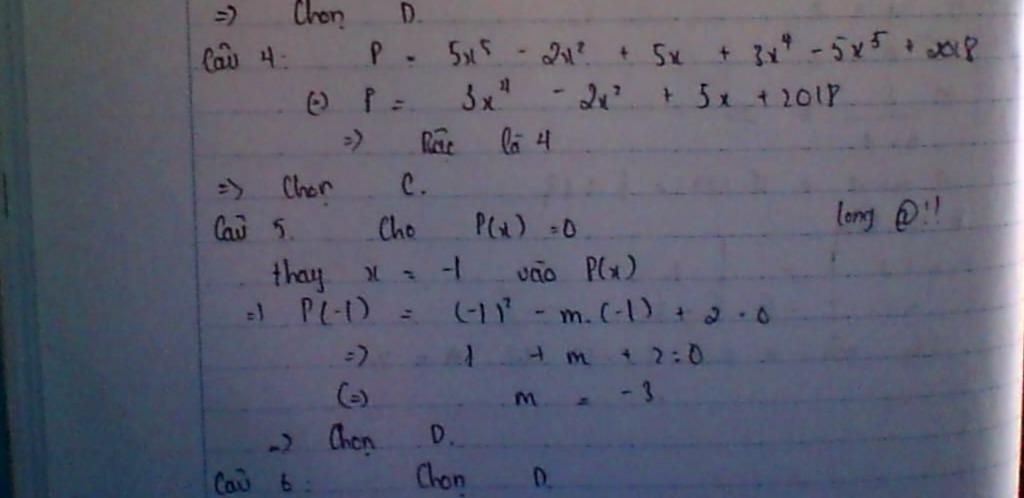 => Chọn D.
Câu 4: P = 5x⁵ - 2x² + 5x + 3x⁴ - 5x⁵ + 2018
(=) P = 3x⁴ - 2x² + 5x + 2018
=> Bậc là 4
=> Chọn C.
long @!!
Câu 5. Cho P(x) = 0
thay x = -1 vào P(x)
=> P(-1) = (-1)² - m.(-1) + 2 = 0
=> 1 + m + 2 = 0
(=) m = -3
=> Chọn D.
Câu 6: Chọn D.